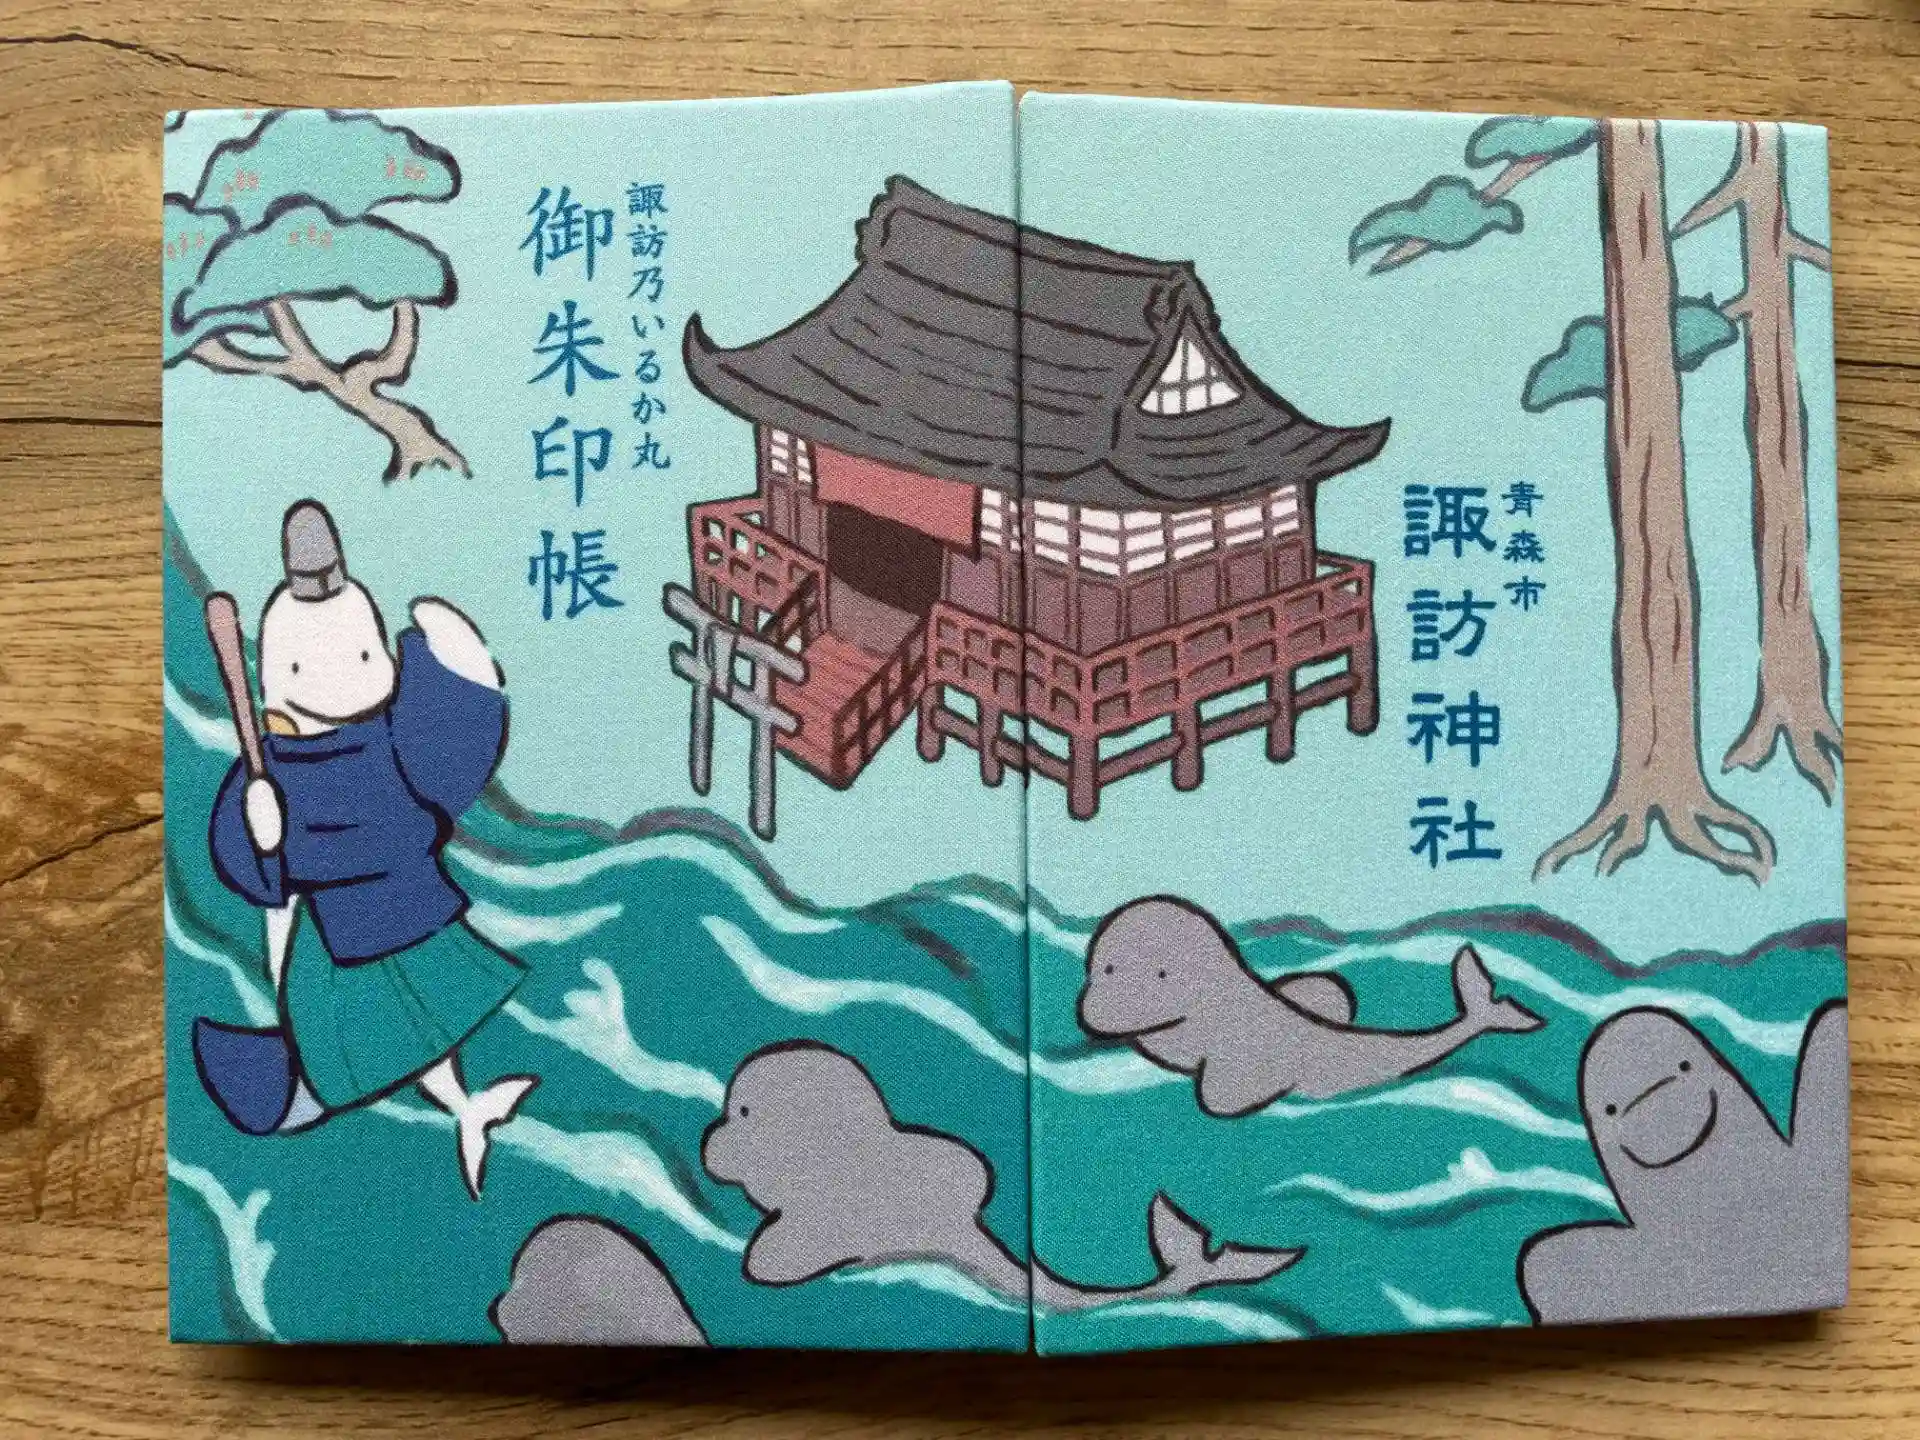 諏訪乃いるか丸
御朱印帳
青森市
諏訪神社